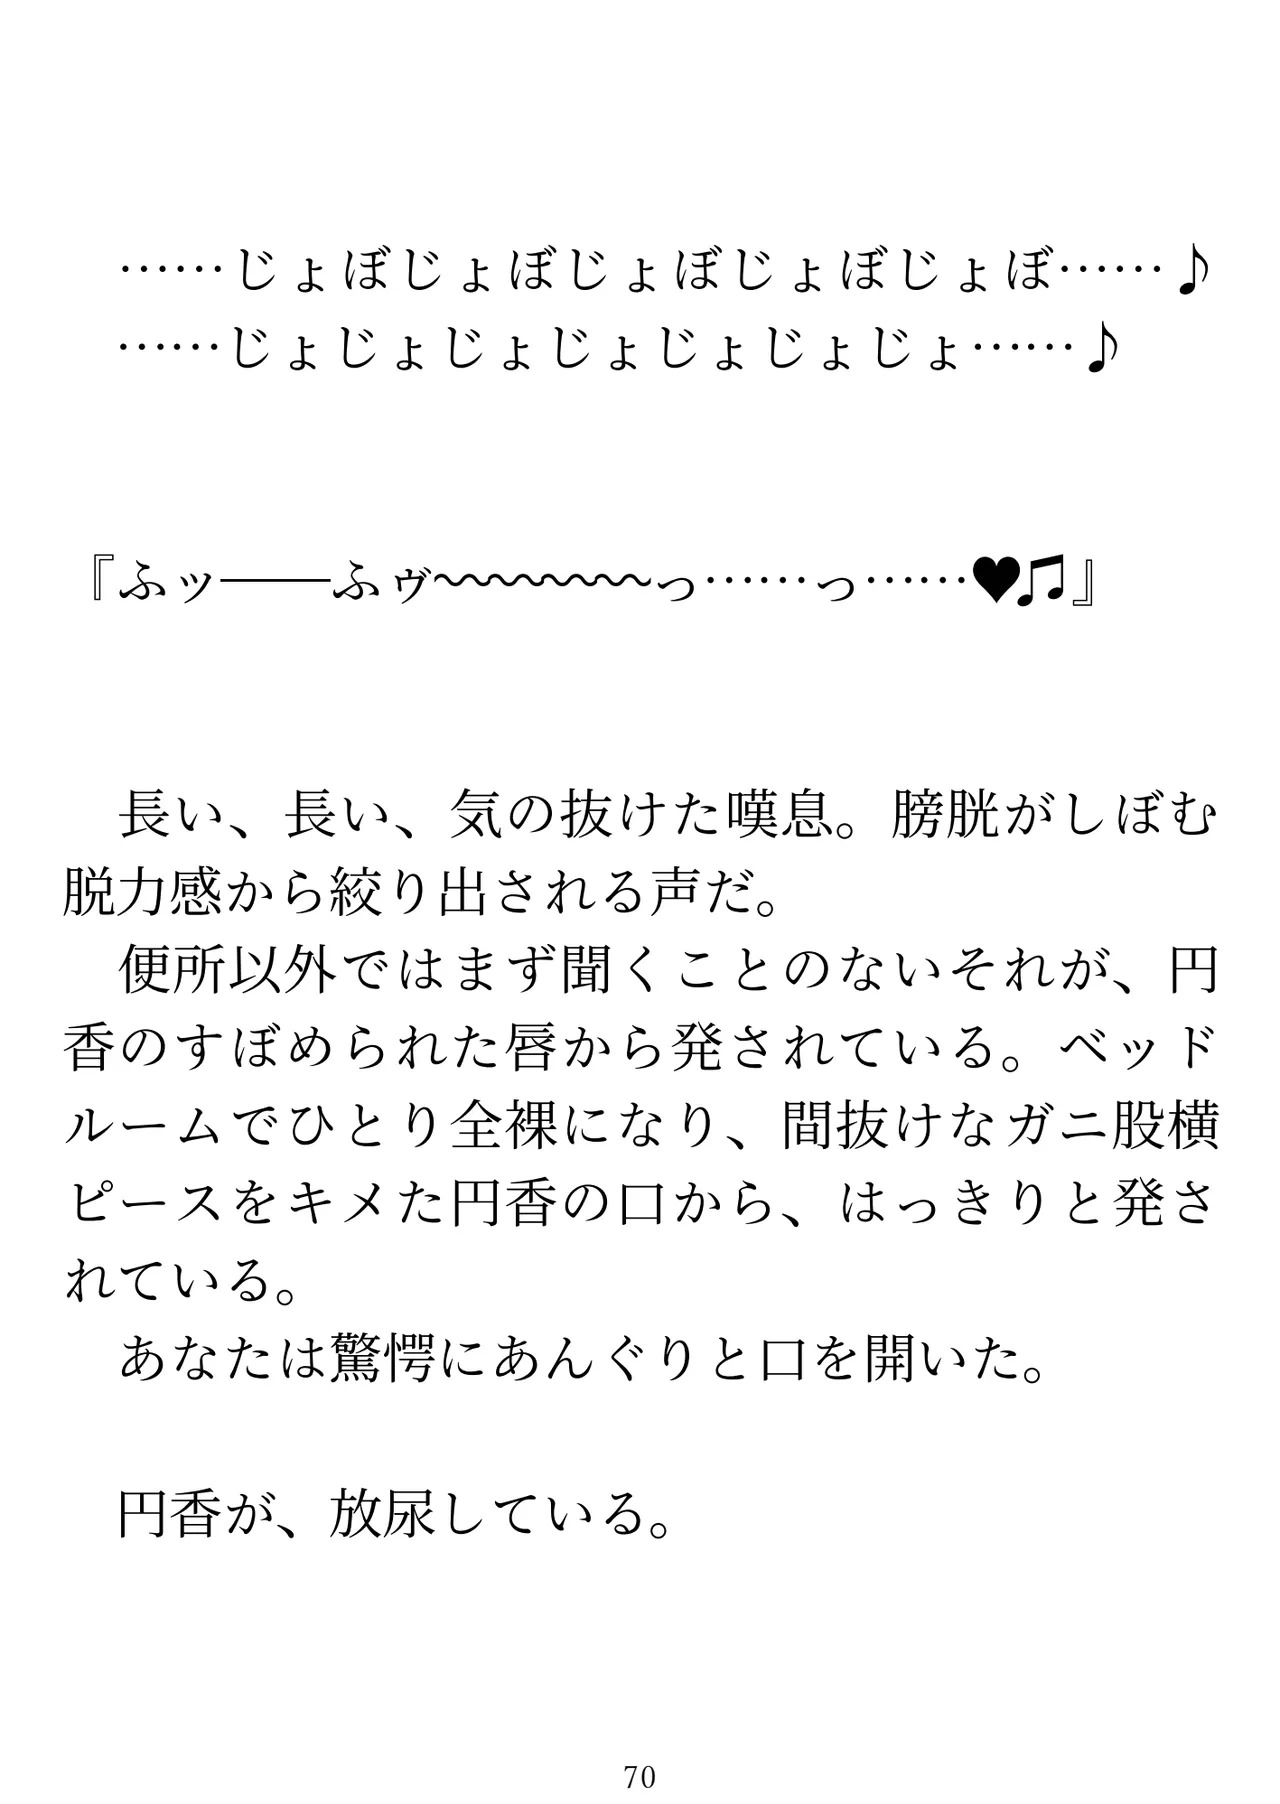 ……じょぼじょぼじょぼじょぼじょぼ……♪
……じょじょじょじょじょじょじょ……♪
『ふッ――ふヴ〜〜〜〜っ……っ……♥♫』
長い、長い、気の抜けた嘆息。膀胱がしぼむ
脱力感から絞り出される声だ。
便所以外ではまず聞くことのないそれが、円
香のすぼめられた唇から発されている。ベッド
ルームでひとり全裸になり、間抜けなガニ股横
ピースをキメた円香の口から、はっきりと発さ
れている。
あなたは驚愕にあんぐりと口を開いた。
円香が、放尿している。
70